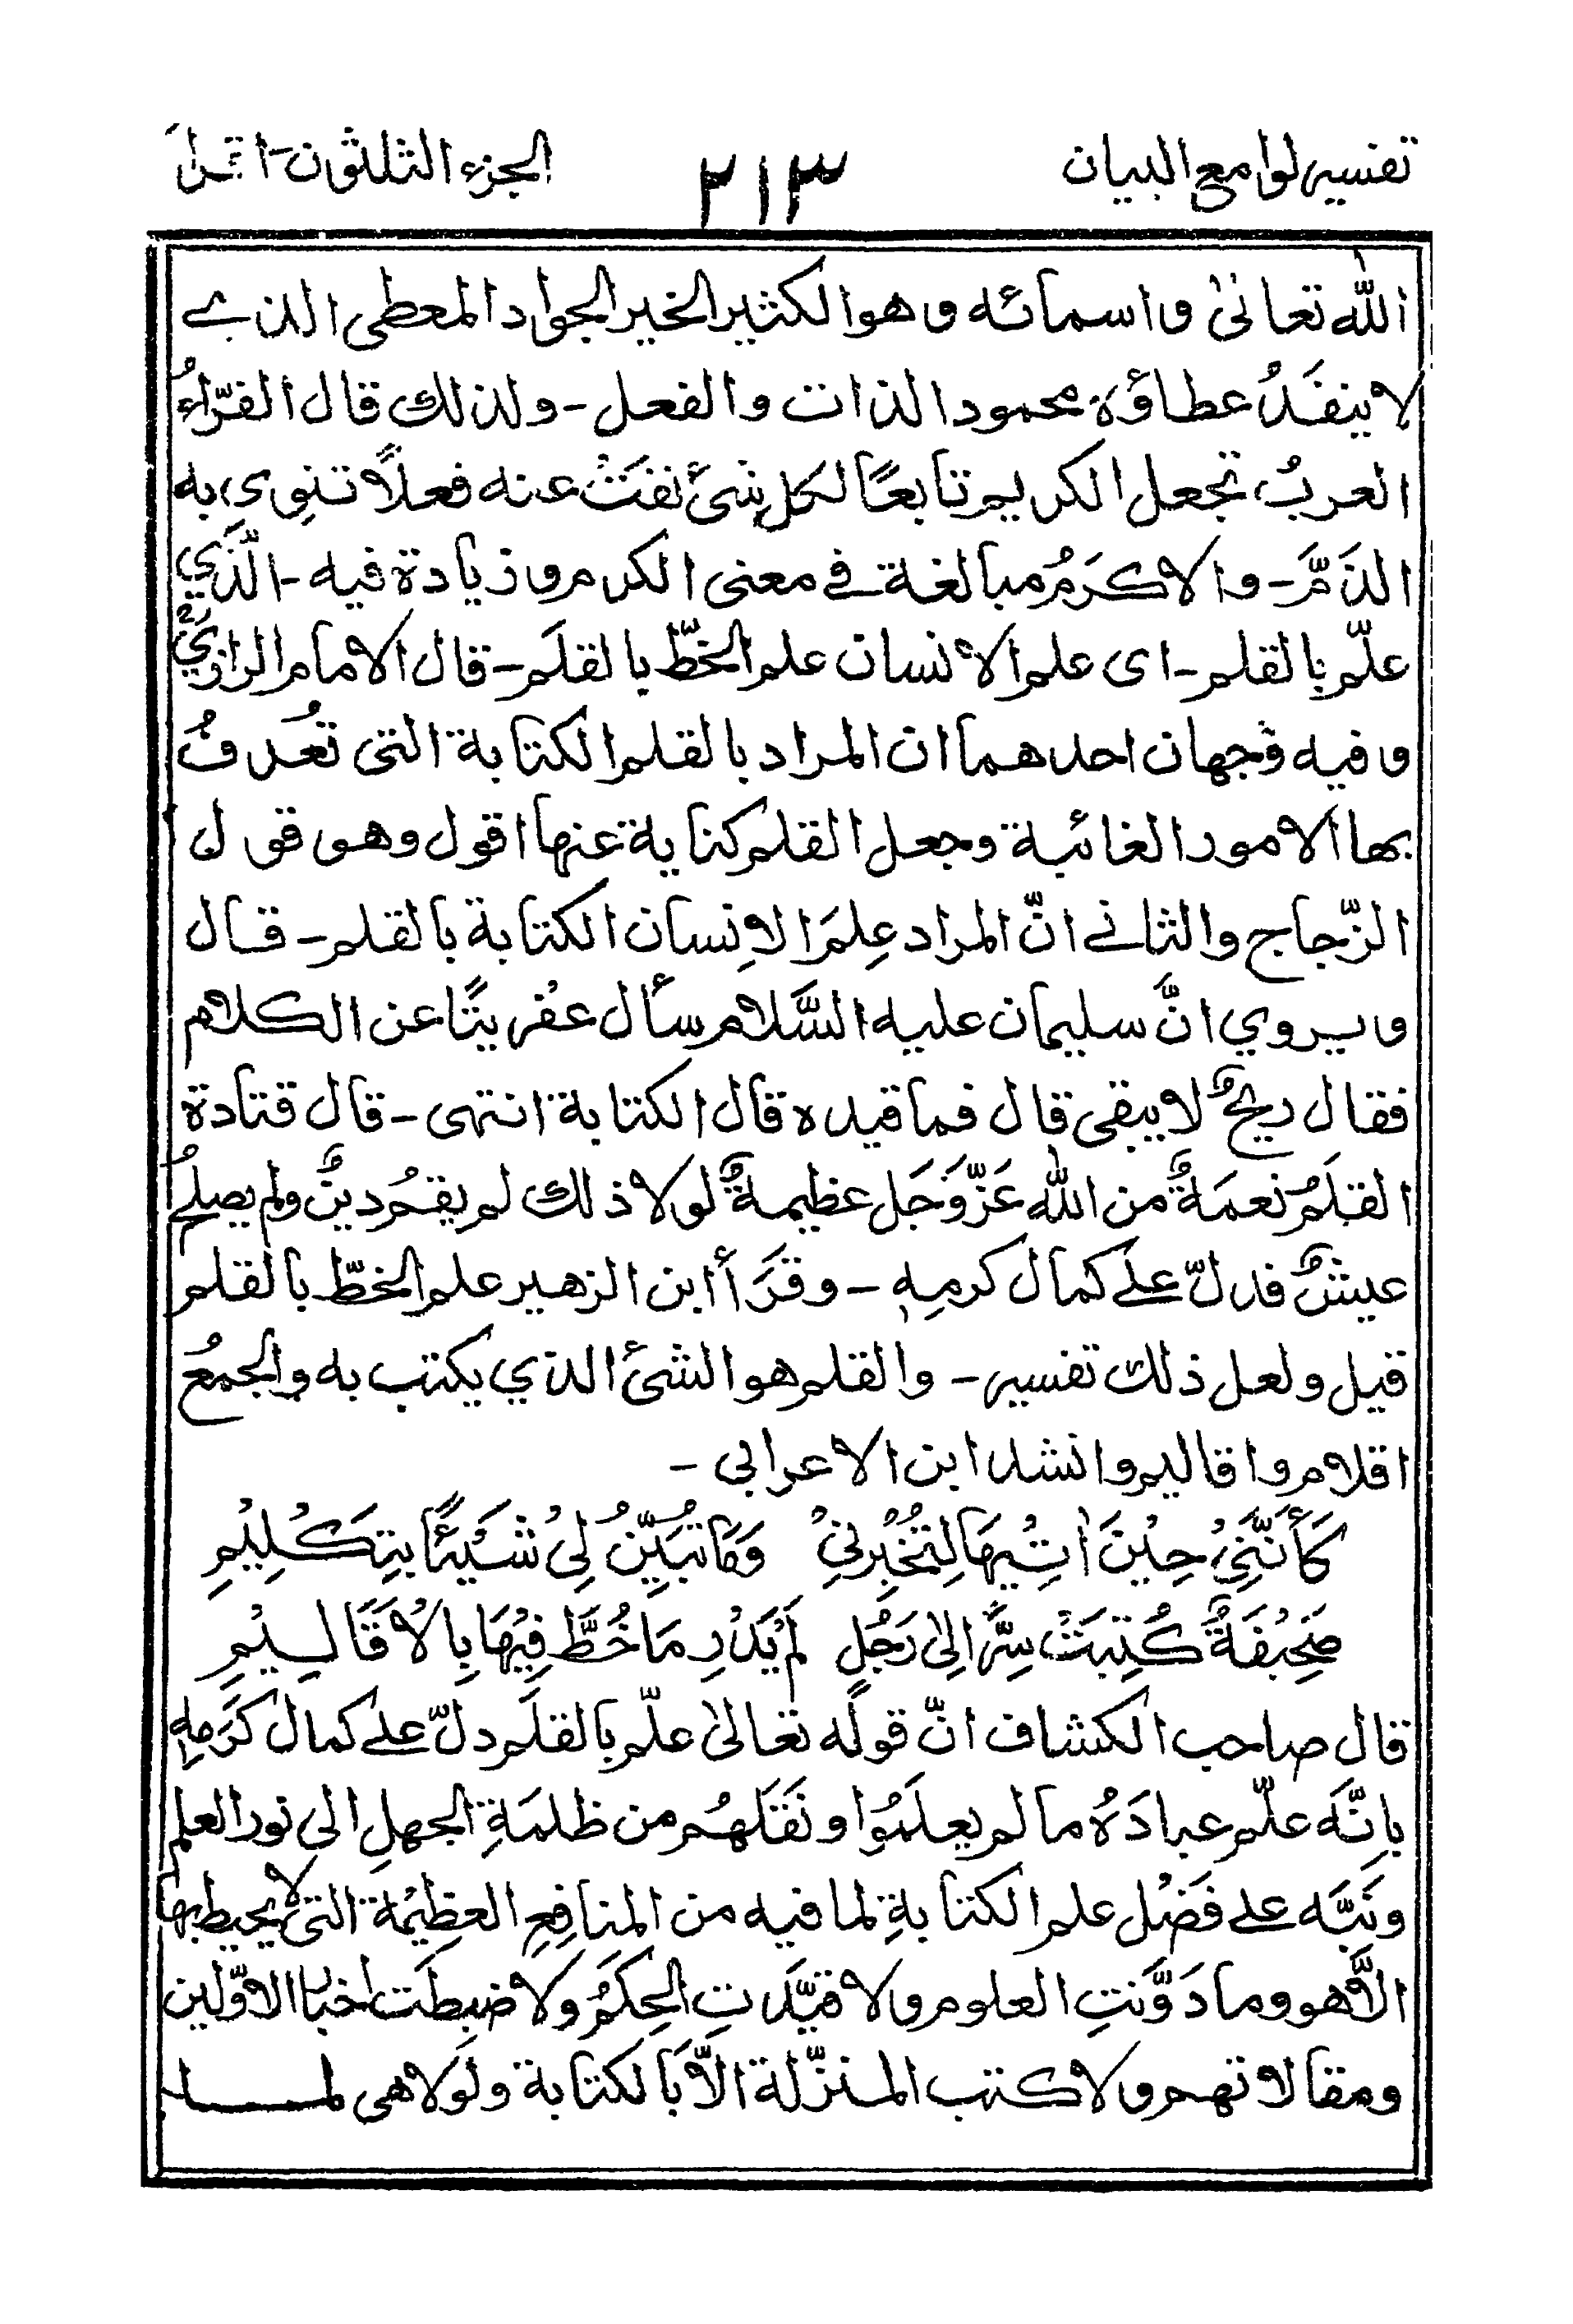 تفسير لوامع البيان ٢١٣ الجزء الثلثون - اقرأ
الله تعالىٰ واسمائه وهو الكثير الخير الجواد المعطى الذے
لا ينفَدُ عطاؤه محمود الذات والفعل - ولذلك قال الفرّاءُ
العربُ تجعل الكريم تابعًا لكل شئ نفَتْ عنه فعلاً تنوِى به
الذَمَّ - والاكرَمُ مبالغة فے معنى الكرم وزيادة فيه - الَّذِي
علّم بالقلم - اى علم الانسان علم الخطّ بالقلَم - قال الامام الرازيؒ
وفيه وَجهان احدهما ان المراد بالقلم الكتابة التى تُعرفُ
بها الامور الغائبة وجعل القلم كناية عنها اقول وهو قول
الزّجاج والثانے انّ المراد عِلمَ الاِنسان الكتابة بالقلم - قال
ويروي انَّ سليمان عليه السَّلام سأل عفريتًا عن الكلام
فقال ريحٌ لا يبقى قال فما قيده قال الكتابة انتهى - قال قتادة
القلَمُ نعمَةٌ من الله عَزّوَجَل عظيمةٌ لولا ذلك لم يقُم دينٌ ولم يصلحُ
عيشٌ فدلّ علے كمال كرمِهٖ - وقَرَأ ابن الزهير علم الخطّ بالقلم
قيل ولعل ذلك تفسير - والقلم هو الشئ الذي يكتب به والجمعُ
اقلام واقاليم وانشد ابن الاعرابى -
كَأَنَّنِيْ حِيْنَ اٰتِيْهَا لِتُخْبِرَنِيْ وَمَا تُبَيِّنُ لِيْ شَيْئًا بِتِكْلِيْمِ
صَحِيْفَةٌ كُتِبَتْ سِرًّا اِلىٰ رَجُلٍ لَمْ يَدْرِ مَا خُطَّ فِيْهَا بِالْاَقَالِيْمِ
قال صاحب الكشاف انّ قولَه تعالىٰ علّم بالقلَم دلّ علے كمال كرَمِهٖ
بانَّه علّم عبادَهُ ما لم يعلَمُوا ونَقَلَهُم من ظلمَةِ الجهلِ الى نور العلم
ونَبَّه علے فَضْل علم الكتابةِ لما فيه من المنافِعِ العظِيْمة التى لا يحيط بها
الاَّ هو وما دَوَّنتِ العلوم ولا قيّدتِ الحِكَمُ ولا ضبطَت اخبار الاوّلين
ومقالاتهم ولا كتب المنزّلة الاّ بالكتابة ولَولا هى لما